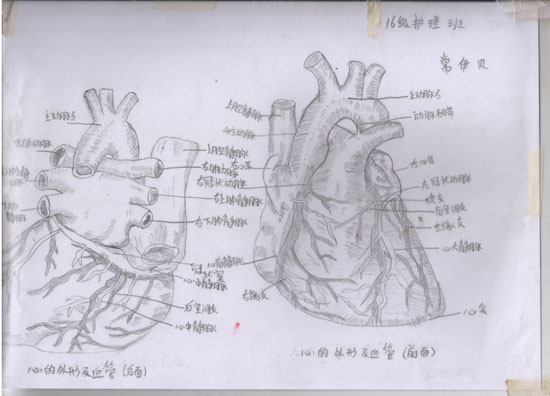 16级护理 班
常伊贝
主动脉弓
上腔静脉
右冠状动脉
右上肺静脉
右下肺静脉
冠状窦
心小静脉
后室间支
心中静脉
心的外形及血管(后面)
上腔静脉
升主动脉
心前静脉
右缘支
主动脉弓
动脉韧带
左心耳
左冠状动脉
旋支
前室间支
左缘支
心大静脉
心尖
心的外形及血管(前面)